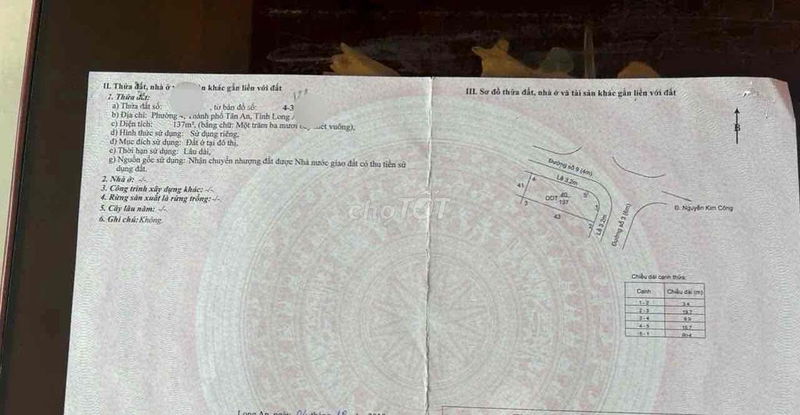 II. Thửa đất, nhà ở khác gắn liền với đất
1. Thửa đất:
a) Thửa đất số: , tờ bản đồ số: 4-3
b) Địa chỉ: Phường thành phố Tân An, Tỉnh Long
c) Diện tích: 137m², (bằng chữ: Một trăm ba mươi mét vuông),
d) Hình thức sử dụng: Sử dụng riêng,
đ) Mục đích sử dụng: Đất ở tại đô thị,
e) Thời hạn sử dụng: Lâu dài,
g) Nguồn gốc sử dụng: Nhận chuyển nhượng đất được Nhà nước giao đất có thu tiền sử
dụng đất.
2. Nhà ở: -/-
3. Công trình xây dựng khác: -/-
4. Rừng sản xuất là rừng trồng: -/-
5. Cây lâu năm: -/-
6. Ghi chú: Không.
Long An, ngày
III. Sơ đồ thửa đất, nhà ở và tài sản khác gắn liền với đất
B
Đường số 9 (4m)
Lề 3.2m
41
ODT
137
43
3
Lề 3.2m
Đường số 3 (6m)
Đ. Nguyễn Kim Công
Chiều dài cạnh thửa:
Cạnh Chiều dài (m)
1-2
2-3
3-4
4-5
5-1
chợTỐT